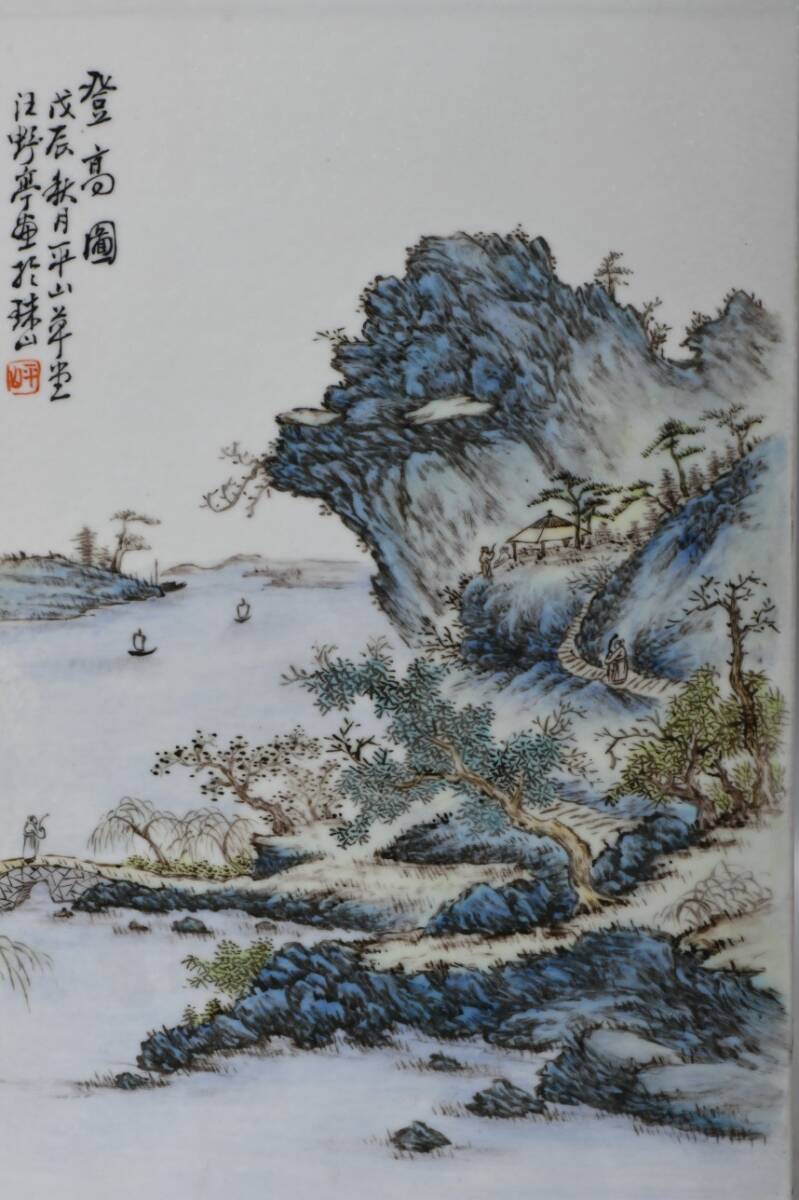 登高圖
戊辰秋月平山草堂
汪野亭畫於珠山
平山